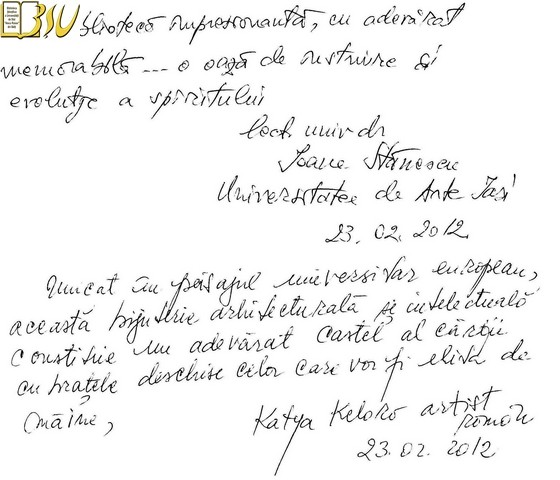 BSU
bibliotecă impresionantă, cu adevărat
memorabilă... o oază de instruire și
evoluție a spiritului
lect. univ dr
Ioana Stănescu
Universitatea de Arte Iași
23. 02. 2012
Unicat în peisajul universitar european,
această bijuterie arhitecturală și intelectuală
constituie un adevărat castel al cărții
cu brațele deschise celor care vor fi elita de
mâine,
Katya Keloro artist
român
23.02. 2012